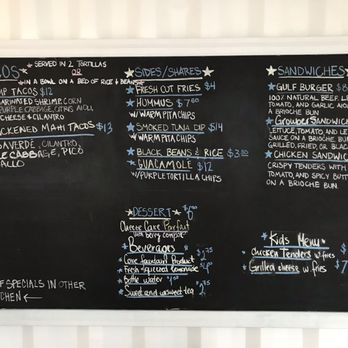 COS
★ SERVED IN 2 TORTILLAS
OR
★ IN A BOWL ON A BED OF RICE & BEANS
MP TACOS $12
MARINATED SHRIMP, CORN
PURPLE CABBAGE, CITRUS AIOLI
CHEESE + CILANTRO
ACKENED MAHI TACOS $13
CILANTRO
LE CABBAGE, PICO
GALLO
OF SPECIALS IN OTHER
CHEN ←
★ SIDES/SHARES ★
★ FRESH CUT FRIES $4
★ HUMMUS $7.00
W/ WARM PITA CHIPS
★ SMOKED TUNA DIP $14
W/ WARM PITA CHIPS
★ BLACK BEANS & RICE $3.00
★ GUACAMOLE $12
W/ PURPLE TORTILLA CHIPS
DESSERT
Cheese Cake Parfait
with berry compote
Beverages
★ Coke fountain Product $2.75
★ Fresh squeezed lemonade
★ Bottle water
★ Sweet and unsweet tea
★ SANDWICHES ★
★ GULF BURGER $
100% NATURAL BEEF, LE
TOMATO, AND GARLIC AIO
A BRIOCHE BUN
★ Grouper Sandwich
LETTUCE, TOMATO, AND LE
SAUCE ON A BRIOCHE BUN
GRILLED, FRIED, OR BLAC
★ CHICKEN SANDWICH
CRISPY TENDERS WITH
TOMATO, AND SPICY BUTT
ON A BRIOCHE BUN.
Kids Menu
★ Chicken Tenders w/ fries $
★ Grilled cheese w/ fries $7